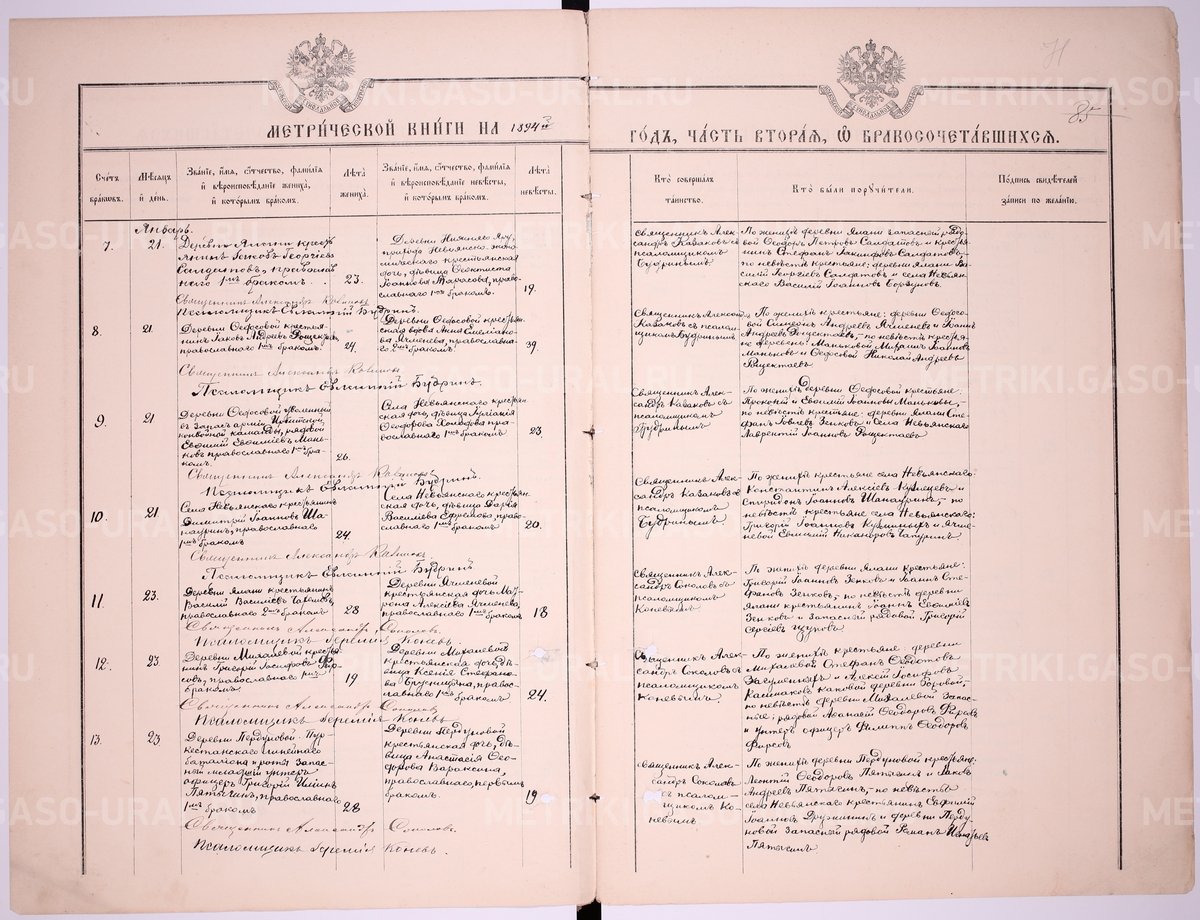 МЕТРИ́ЧЕСКОЙ КНИ́ГИ НА 1894й
ГО́ДЪ, ЧА́СТЬ ВТОРА́Я, Ѽ БРАКОСОЧЕТА́ВШИХСЯ.
85
Сче́тъ
бра́ковъ.
Мѣ́сяцъ
и̂ де́нь.
Зва́нїе, и̂́мѧ, ѻ̂́тчество, фами́лїѧ
и̂ вѣроисповѣ́данїе жениха̀,
и̂ кото́рымъ бра́комъ.
Лѣ́та
жениха̀.
Зва́нїе, и̂́мѧ, ѻ̂́тчество, фами́лїѧ
и̂ вѣроисповѣ́данїе невѣ́сты,
и̂ кото́рымъ бра́комъ.
Лѣ́та
невѣ́сты.
Кто̀ соверша́лъ
та́инство.
Кто̀ бы́ли поручи́тели.
По́дпись свидѣ́телей
за́писи по жела́нїю.
Январь.
7.
21.
Деревни Ялани крестья-
нинъ Іаковъ Георгіевъ
Солдатовъ, православ-
наго 1мъ бракомъ.
23.
Деревни Нижняго
крестьянская
дочь, дѣвица Ѳеоктиста
Іоаннова Тарасова, право-
славнаго 1мъ бракомъ.
19.
Священникъ Алек-
сандръ Казаковъ съ
псаломщикомъ
Бубринымъ
По женихѣ деревни Ялани запасный рядо-
вой Ѳеодоръ Петровъ Солдатовъ и крестья-
нинъ Стефанъ Солдатовъ,
по невѣстѣ крестьяне: деревни Ялани Ва-
силій Георгіевъ Солдатовъ и села Невьян-
скаго Василій Іоанновъ
Священникъ Александръ Казаковъ
Псаломщикъ Евлампій Бубринъ.
8.
21
Деревни Ѳефеловой крестья-
нинъ Іаковъ Андреевъ
православнаго 1мъ бракомъ.
24.
Деревни Ѳефеловой крестьян-
ская вдова Анна Емелиано-
ва Ячменева, православна-
го 2мъ бракомъ.
39.
Священникъ Алексан
Казаковъ съ псалом-
щикомъ Бубринымъ
По женихѣ крестьяне: деревни Ѳефело-
вой Симеонъ Андреевъ Ячменевъ и Іоаннъ
Андреевъ по невѣстѣ крестья-
не деревень: Маньковой Михаилъ Іоанновъ
Маньковъ и Ѳефеловой Николай Андреевъ
Священникъ Александръ Казаковъ
Псаломщикъ Евлампій Бубринъ.
9.
21
Деревни Ѳефеловой уволенный
въ запасъ арміи Ирбитской
конвойной команды, рядовой
Евѳимій Евѳиміевъ Мань-
ковъ православнаго 1мъ бра-
комъ.
26.
Села Невьянскаго крестьян-
ская дочь, дѣвица
Ѳеодорова пра-
вославнаго 1мъ бракомъ
23.
Священникъ Алек-
сандръ Казаковъ съ
псаломщикомъ
Бубринымъ
По женихѣ деревни Ѳефеловой крестьяне:
Прокопій и Евѳимій Іоанновы Маньковы,
по невѣстѣ крестьяне: деревни Ялани Сте-
фанъ Зенковъ и села Невьянскаго
Лаврентій Іоанновъ
Священникъ Александръ Казаковъ
Псаломщикъ Евлампій Бубринъ
10.
21
Села Невьянскаго крестьянинъ
Димитрій Іоанновъ Ша-
пауринъ, православнаго
1мъ бракомъ
24.
Села Невьянскаго крестьян-
ская дочь, дѣвица Дарья
Васильева Ефремова, право-
славнаго 1мъ бракомъ
20.
Священникъ Алек-
сандръ Казаковъ съ
псаломщикомъ
Бубринымъ
По женихѣ крестьяне села Невьянскаго:
Константинъ Алексіевъ и
Спиридонъ Іоанновъ Шапауринъ, по
невѣстѣ крестьяне села Невьянскаго:
Григорій Іоанновъ и Ячме-
невой Евгеній Никаноровъ
Священникъ Александръ Казаковъ.
Псаломщикъ Евлампій Бубринъ
11.
23.
Деревни Ялани крестьянинъ
Василій Васильевъ
православнаго 2мъ бракомъ
28
Деревни Ячменевой
крестьянская дочь Мат-
рона Алексіева Ячменева,
православнаго 1мъ бракомъ
18
Священникъ Алек-
сандръ Соколовъ съ
псаломщикомъ
Коневымъ
По женихѣ деревни Ялани крестьяне:
Григорій Іоанновъ Зенковъ и Іоаннъ Сте-
фановъ Зенковъ, по невѣстѣ деревни
Ялани крестьянинъ Іоаннъ
Зенковъ и запасный рядовой Григорій
Сергіевъ
Священникъ Александръ Соколовъ.
Псаломщикъ Іеремія Коневъ.
12.
23
Деревни Михалевой крестья-
нинъ Григорій Іосифовъ Фир-
совъ, православнаго 1мъ
бракомъ.
19
Деревни Михалевой
крестьянская дочь дѣ-
вица Ксенія Стефано-
ва православ-
наго 1мъ бракомъ
24.
Священникъ Алек-
сандръ Соколовъ съ
псаломщикомъ
Коневымъ.
По женихѣ крестьяне: деревни
Михалевой Стефанъ Ѳеодотовъ
и Алексій Іосифовъ
деревни
по невѣстѣ деревни Михалевой запас-
ные: рядовой Аѳанасій Ѳеодоровъ Фирсовъ
и унтеръ офицеръ Филиппъ Ѳеодоровъ
Фирсовъ
Священникъ Александръ Соколовъ
Псаломщикъ Іеремія Коневъ
13.
23
Деревни Пердуновой. Тур-
кестанскаго линейнаго
баталіона роты запас-
ный младшій унтеръ
офицеръ Григорій Ильинъ
Пятыгинъ, православнаго
1мъ бракомъ
28
Деревни Пердуновой
крестьянская дочь, дѣ-
вица Анастасія Ѳео-
дорова Вараксина,
православнаго, первымъ
бракомъ.
19
Священникъ Алек-
сандръ Соколовъ
съ псалом-
щикомъ Ко-
невымъ
По женихѣ деревни Пердуновой крестьяне:
Леонтій Ѳеодоровъ Пятыгинъ и Іаковъ
Андреевъ Пятыгинъ, по невѣстѣ
села Невьянскаго крестьянинъ
Іоанновъ Дружининъ и деревни Перду-
новой запасный рядовой Романъ
Пятыгинъ
Священникъ Александръ Соколовъ.
Псаломщикъ Іеремія Коневъ.
METRIKI.GASO-URAL.RU